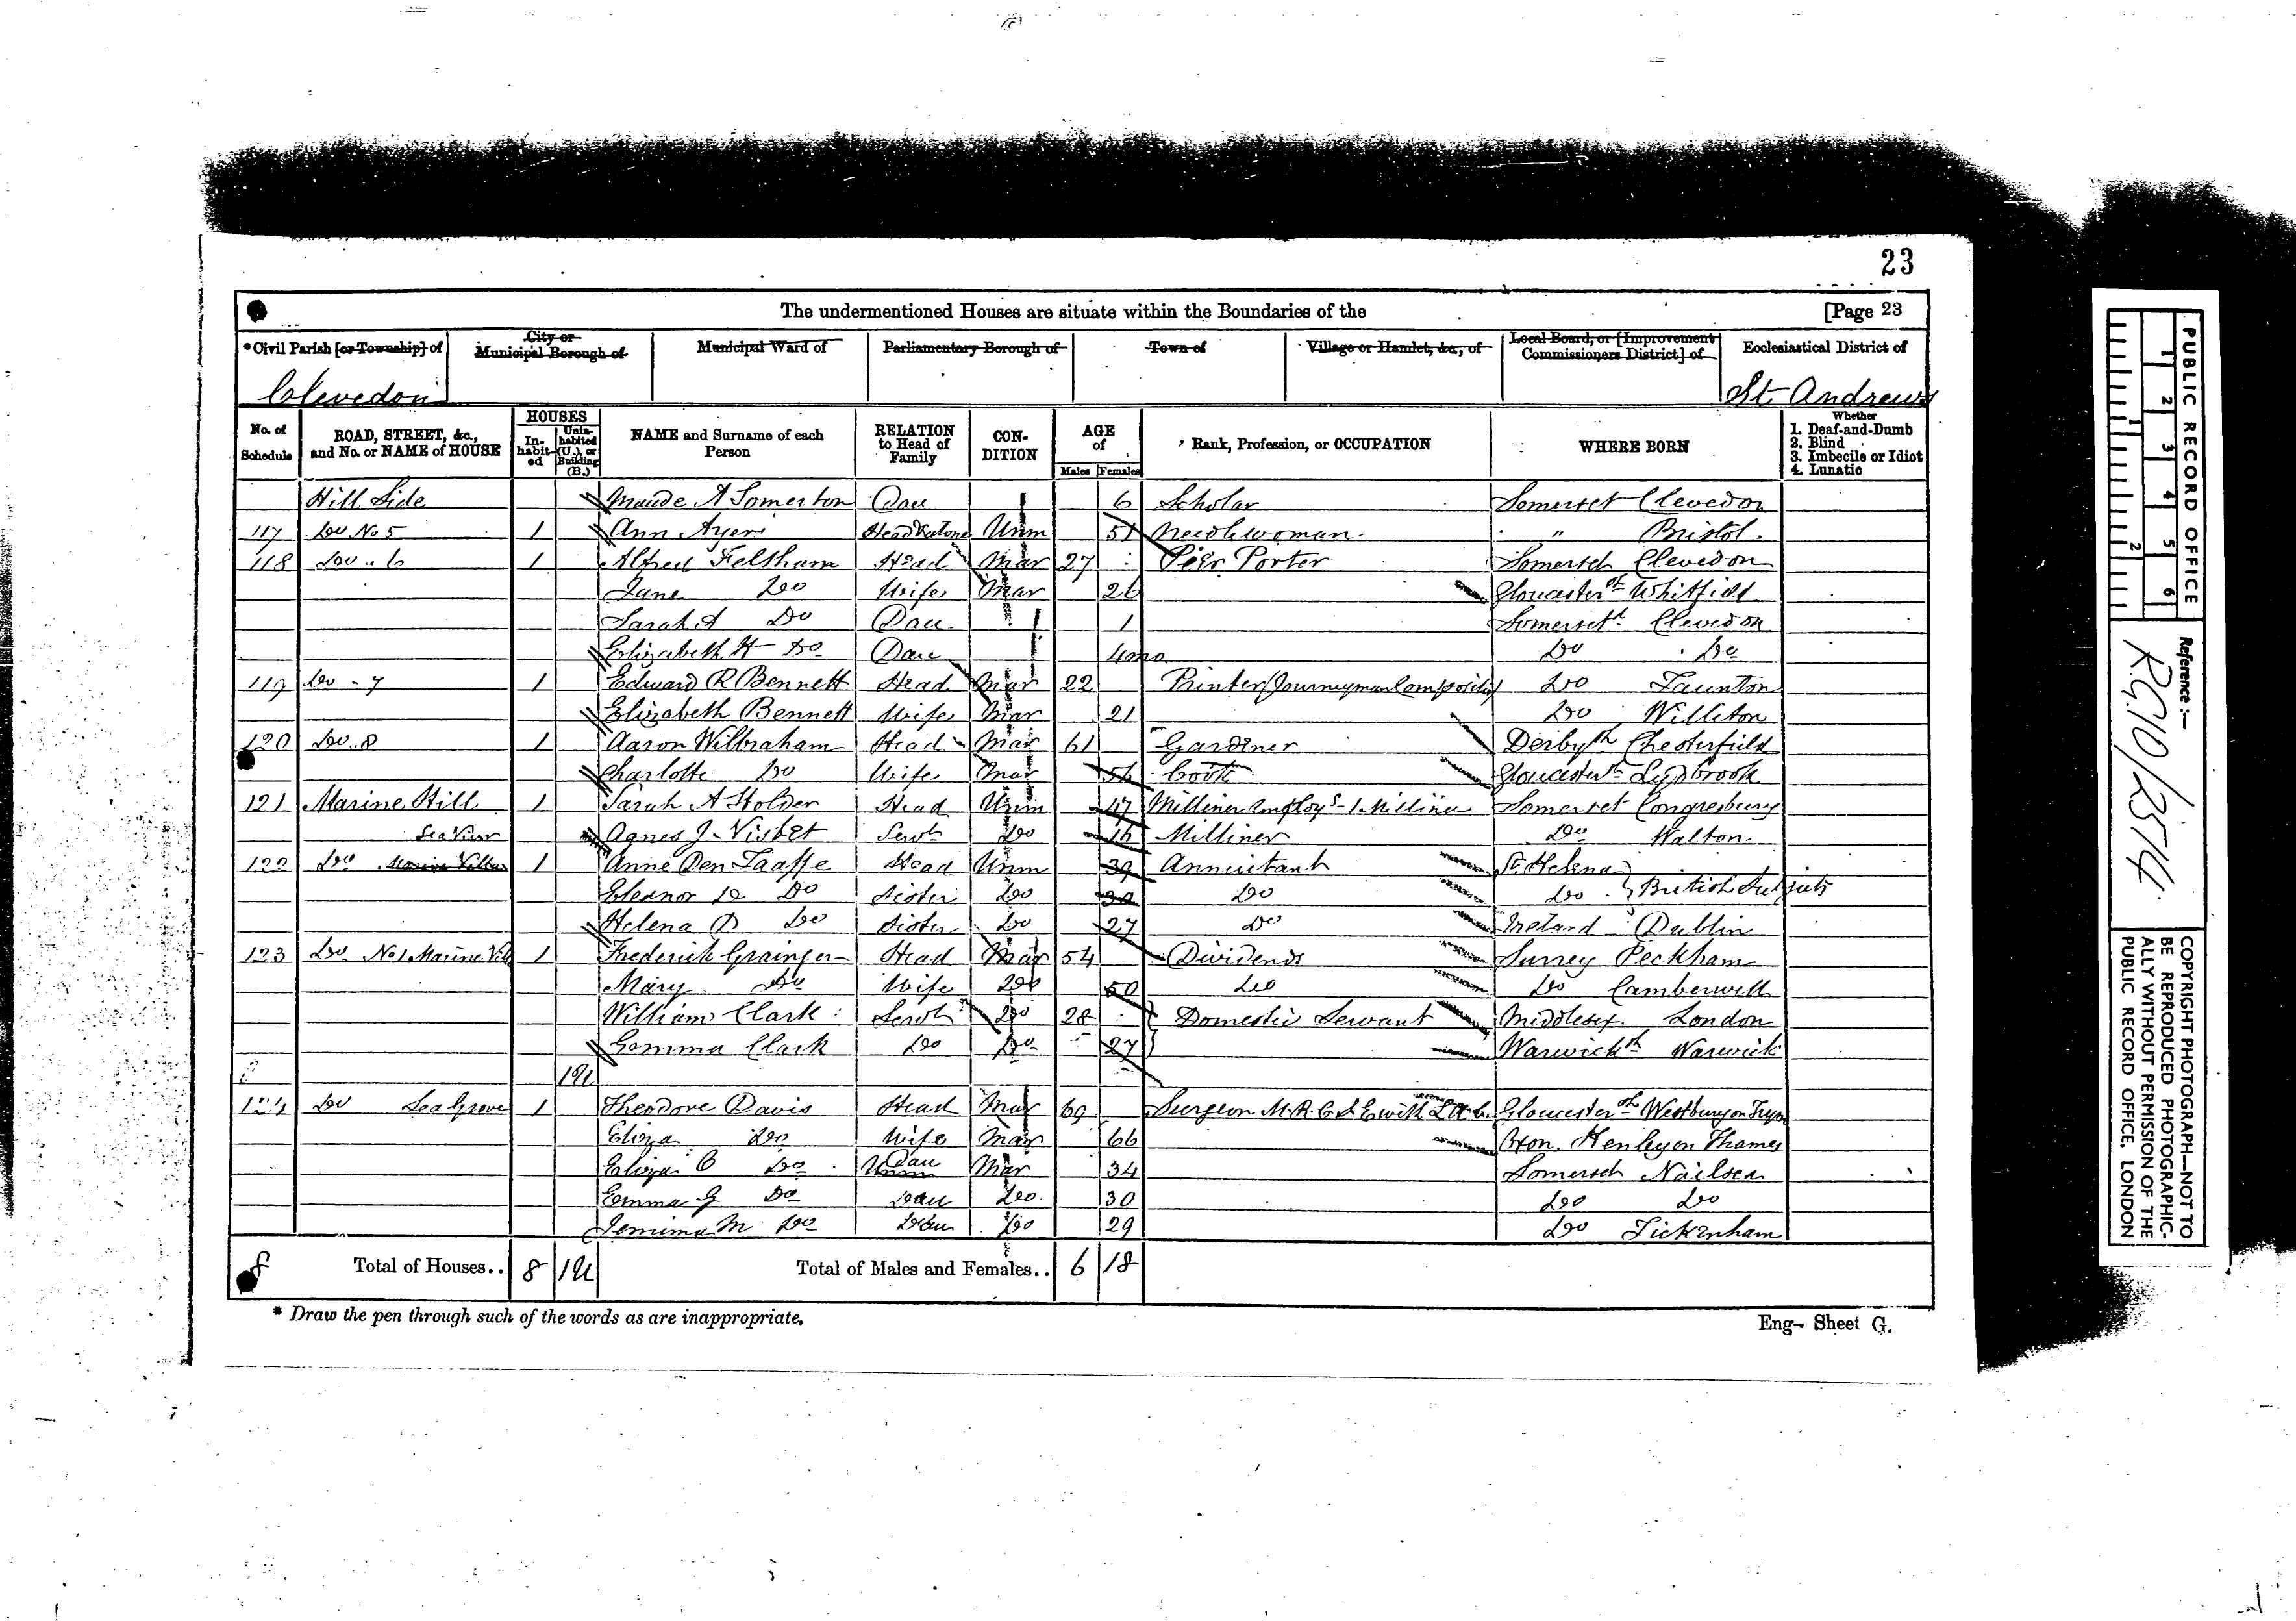 23
The undermentioned Houses are situate within the Boundaries of the [Page 23
*Civil Parish [or Township] of City or Municipal Borough of Municipal Ward of Parliamentary Borough of Town of Village or Hamlet, &c., of Local Board, or [Improvement Commissioners District] of Ecclesiastical District of
Clevedon St Andrews
No. of Schedule ROAD, STREET, &c., and No. or NAME of HOUSE HOUSES In-habit-ed Unin-habited (U.), or Building (B.) NAME and Surname of each Person RELATION to Head of Family CON-DITION AGE of Males Females Rank, Profession, or OCCUPATION WHERE BORN Whether 1. Deaf-and-Dumb 2. Blind 3. Imbecile or Idiot 4. Lunatic
Hill Side Maude A Somerton Dau 6 Scholar Somerset Clevedon
117 Do No 5 1 Ann Ayers Head Unm 51 Needlewoman " Bristol
118 Do " 6 1 Alfred Feltham Head Mar 27 Pier Porter Somerset Clevedon
Jane Do Wife Mar 26 Gloucester Whitfield
Sarah A Do Dau 1 Somerset Clevedon
Elizabeth H Do Dau 4 mo Do Do
119 Do - 7 1 Edward R Bennett Head Mar 22 Printer (Journeyman Compositor) Do Taunton
Elizabeth Bennett Wife Mar 21 Do Williton
120 Do " 8 1 Aaron Wilbraham Head Mar 61 Gardiner Derby Chesterfield
Charlotte Do Wife Mar 54 Cook Gloucester Lydbrook
121 Marine Hill 1 Sarah A Holder Head Unm 47 Milliner employs 1 Milliner Somerset Congresbury
Sea View Agnes J Nisbet Servt Do 16 Milliner Do Walton
122 Do Marine Villas 1 Anne Den Taaffe Head Unm 39 Annuitant St Helena
Eleanor D Do Sister Do 30 Do Do } British Subjects
Helena D Do Sister Do 27 Do Ireland Dublin
123 Do No 1 Marine Vils 1 Frederick Grainger Head Mar 54 Dividends Surrey Peckham
Mary Do Wife Do 50 Do Do Camberwell
William Clark Servt Do 28 } Domestic Servant Middlesex London
Gemma Clark Do Do 27 } Warwick Warwick
1U
124 Do Sea Grove 1 Theodore Davis Head Mar 69 Surgeon M.R.C.S.E with L.A.C. Gloucester Westbury on Trym
Eliza Do Wife Mar 66 Oxon Henley on Thames
Eliza C Do Dau Mar 34 Somerset Nailsea
Emma G Do Dau Do 30 Do Do
Jemima M Do Dau Do 29 Do Tickenham
8 Total of Houses.. 8 1U Total of Males and Females.. 6 18
* Draw the pen through such of the words as are inappropriate.
Eng- Sheet G.
PUBLIC RECORD OFFICE
1 2 3 4 5 6
1 2
Reference :—
RG10/2514
COPYRIGHT PHOTOGRAPH—NOT TO
BE REPRODUCED PHOTOGRAPHIC-
ALLY WITHOUT PERMISSION OF THE
PUBLIC RECORD OFFICE, LONDON